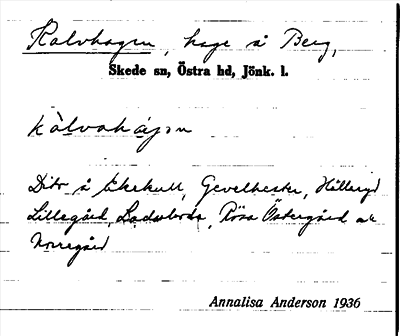 Kalvhagen, hage å Berg,
Skede sn, Östra hd, Jönk. l.
kàlvahájən
Dito å Ekekull, Gevelhester, Hällaryd
Lillegård, Laduborda, Rösa Östergård och
Norregård
Annalisa Anderson 1936